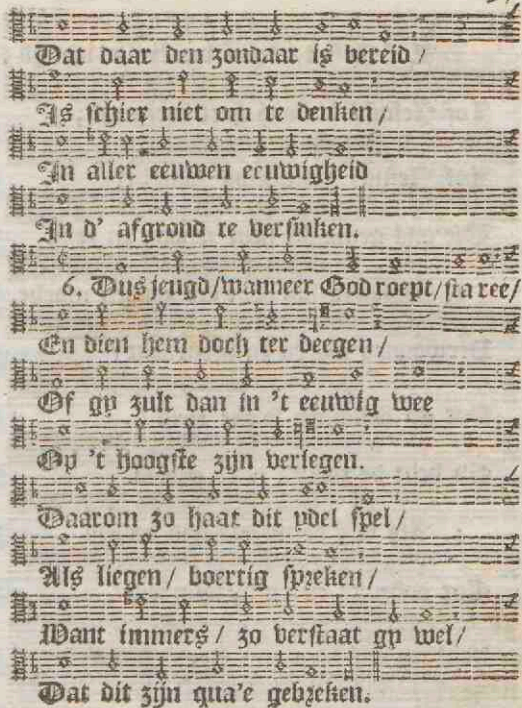 Dat daar den zondaar is bereid /
Is schier niet om te denken /
In aller eeuwen eeuwigheid
In d' afgrond te versinken.
6. Dus jeugd / wanneer God roept / sta ree /
En dien hem doch ter deegen /
Of gy zult dan in 't eeuwig wee
Op 't hoogste zijn verlegen.
Daarom zo haat dit ydel spel /
Als liegen / boertig spreken /
Want immers / zo verstaat gy wel /
Dat dit zijn qua'e gebreken.